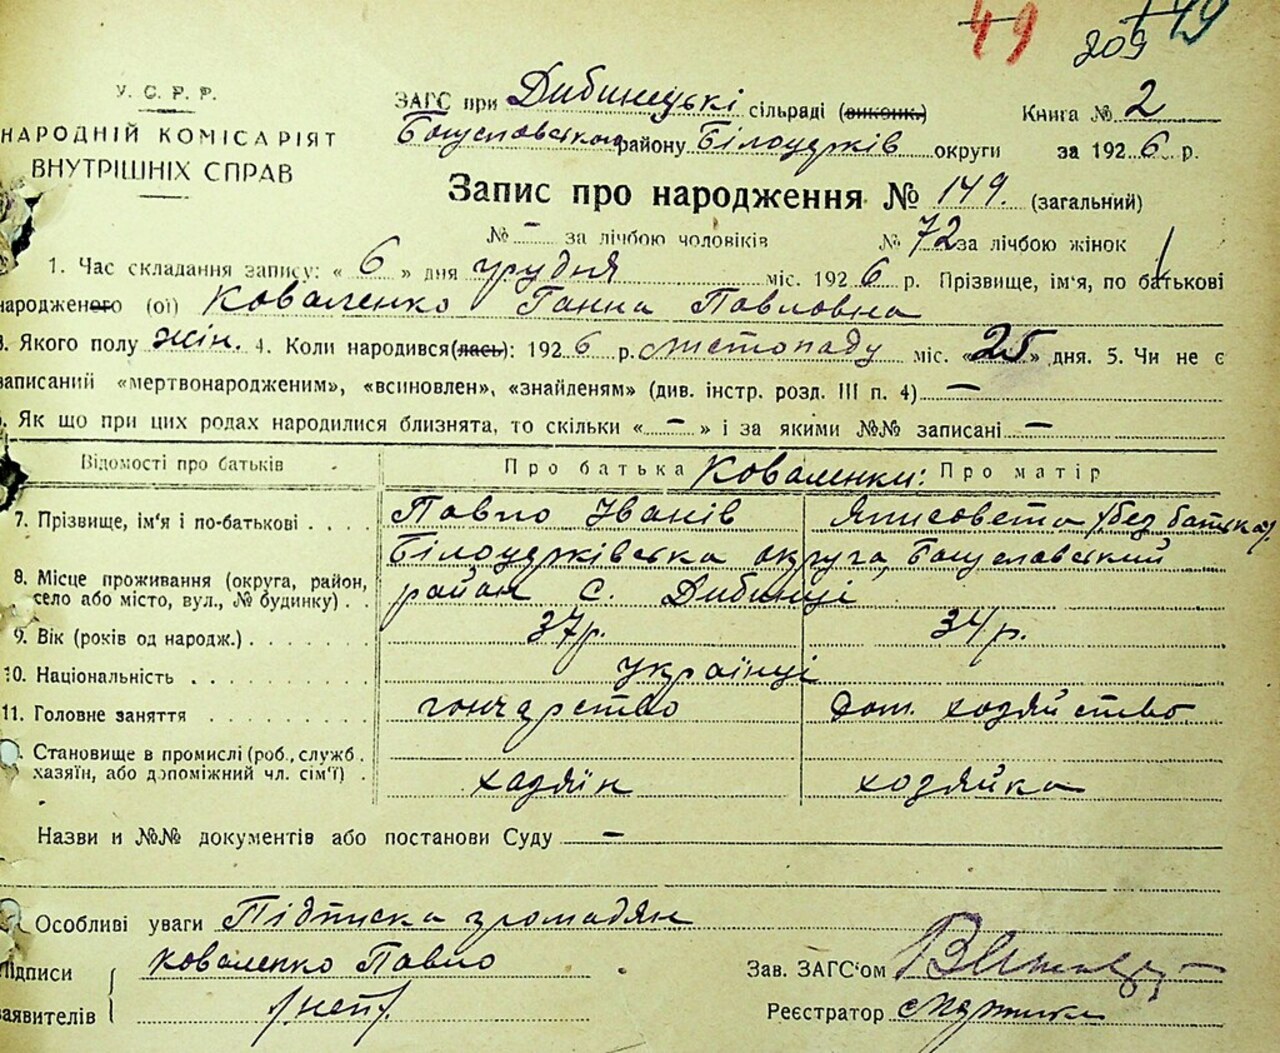 49 209 149
У. С. Р. Р.
НАРОДНІЙ КОМІСАРІЯТ
ВНУТРІШНІХ СПРАВ
ЗАГС при Дибинецькі сільраді (виконк.) Книга № 2
Богуславського району Білоцерків округи за 1926 р.
Запис про народження № 149. (загальний)
№ – за лічбою чоловіків № 72 за лічбою жінок
1. Час складання запису: « 6 » дня грудня міс. 1926 р. Прізвище, ім'я, по батькові
народженого (ої) Коваленко Ганна Павловна
3. Якого полу жін. 4. Коли народився(лась): 1926 р. листопаду міс. «25» дня. 5. Чи не є
записаний «мертвонародженим», «всиновлен», «знайденям» (див. інстр. розд. III п. 4) –
. Як що при цих родах народилися близнята, то скільки « – » і за якими №№ записані –
Відомості про батьків Про батька Коваленки: Про матір
7. Прізвище, ім'я і по-батькові Павло Іванів Ялисовета /без батька/
Білоцерківська округа, Богуславський
8. Місце проживання (округа, район, район с. Дибинці
село або місто, вул., № будинку)
9. Вік (років од народж.) 37р. 34р.
10. Національність українці
11. Головне заняття гончарство дом. хозяйство
. Становище в промислі (роб., служб.
хазяїн, або допоміжний чл. сім'ї) хазяїн хозяйка
Назви и №№ документів або постанови Суду –
Особливі уваги Підписка громадян
Підписи Коваленко Павло Зав. ЗАГС'ом
заявителів /неп/ Реєстратор